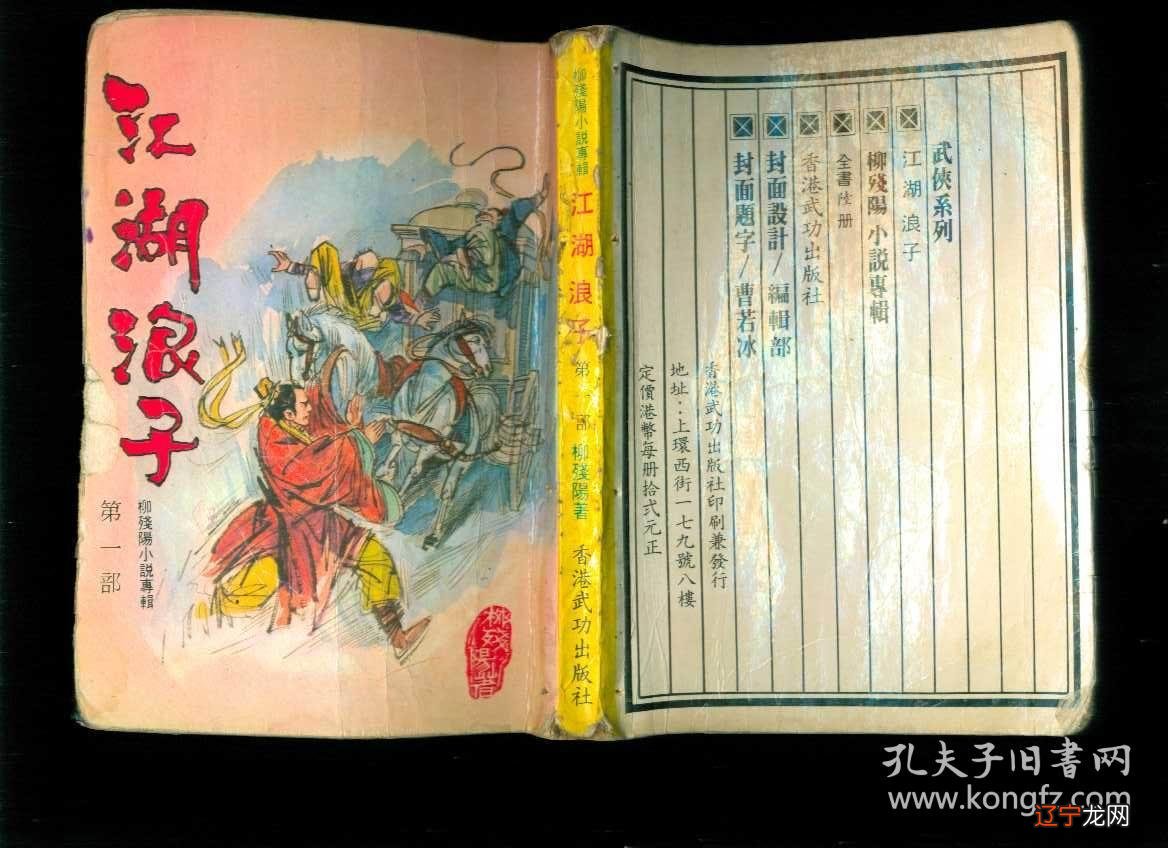 江湖浪子
柳殘陽小說專輯
第一部
柳残陽著
柳殘陽小説專輯
江湖浪子
第一部
柳殘陽著
香港武功出版社
武俠系列
江湖浪子
柳殘陽小説專輯
全書陸册
香港武功出版社
封面設計/編輯部
封面題字/曹若冰
香港武功出版社印刷兼發行
地址:上環西街一七九號八樓
定價港幣每册拾弍元正
孔夫子旧書网
www.kongfz.com
辽宁龙网